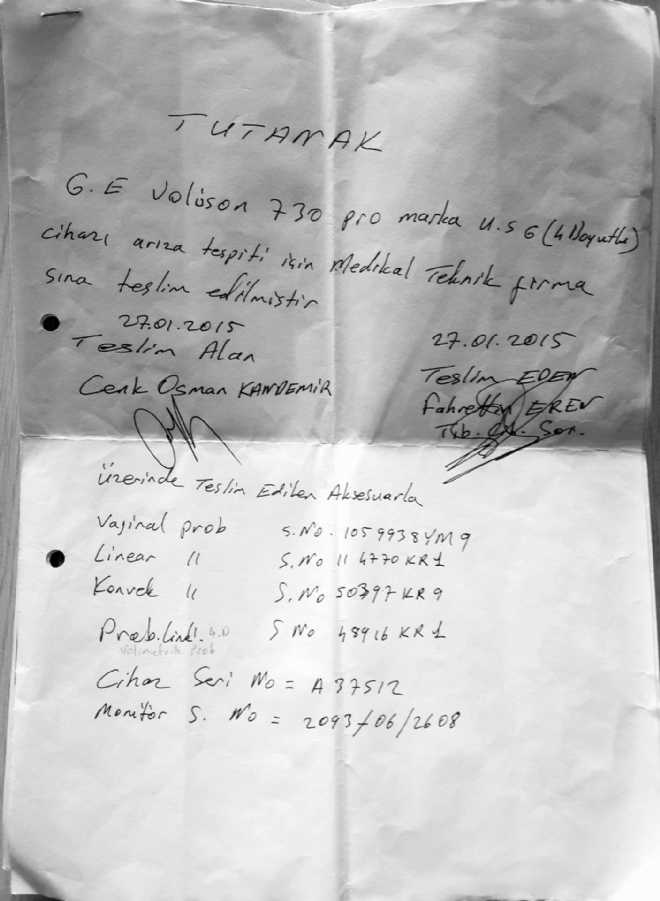 TUTANAK
G.E Volüson 730 pro marka U.S G (4 Boyutlu)
cihazı arıza tespiti için Medikal Teknik firma
sına teslim edilmiştir
27.01.2015
Teslim Alan
Cenk Osman KANDEMİR
27.01.2015
Teslim EDEN
Fahrettin EREN
Tıb. Sor.
Üzerinde Teslim Edilen Aksesuarla
Vajinal prob S.No. 1059938YM9
Linear " S.No 114770KR1
Konvek " S.No 50397KR9
Prob. 4.0 S No 48916 KR1
Volimetrik Prob
Cihaz Seri No = A37512
Monitör S. No = 2093/06/2608